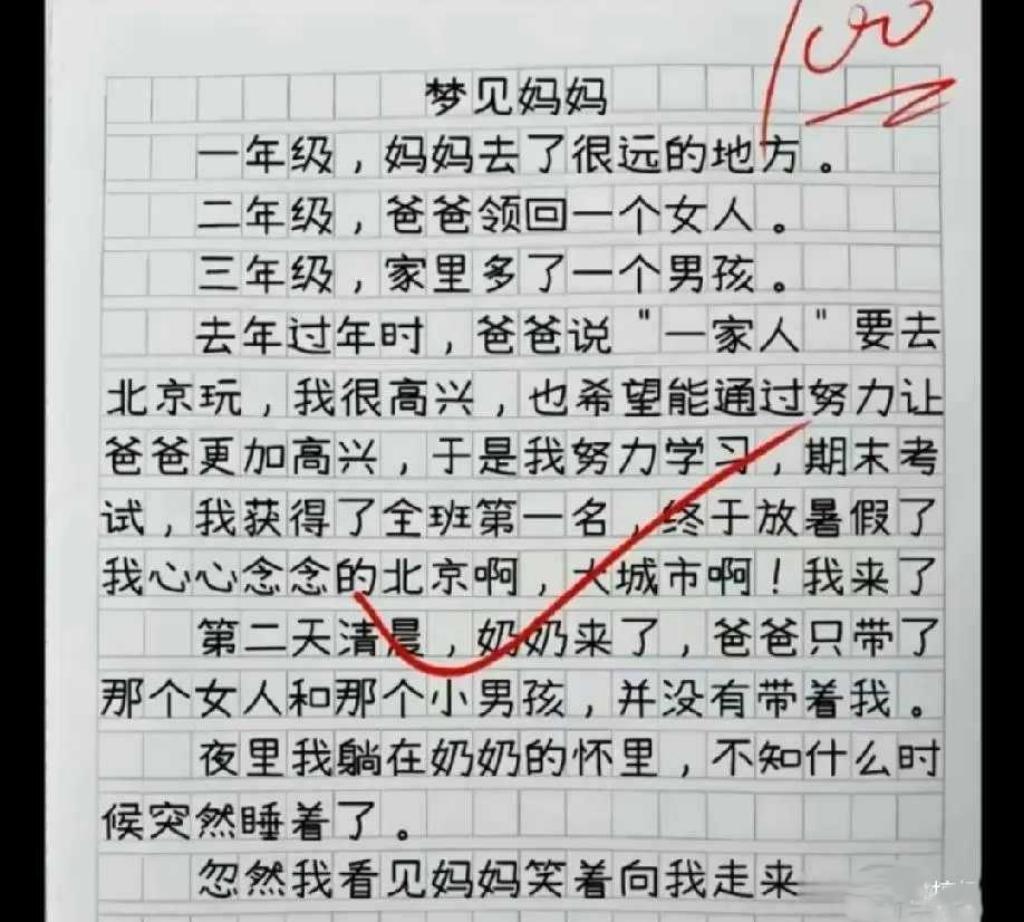 100
梦见妈妈
一年级，妈妈去了很远的地方。
二年级，爸爸领回一个女人。
三年级，家里多了一个男孩。
去年过年时，爸爸说"一家人"要去
北京玩，我很高兴，也希望能通过努力让
爸爸更加高兴，于是我努力学习，期末考
试，我获得了全班第一名，终于放暑假了
我心心念念的北京啊，大城市啊！我来了
第二天清晨，奶奶来了，爸爸只带了
那个女人和那个小男孩，并没有带着我。
夜里我躺在奶奶的怀里，不知什么时
候突然睡着了。
忽然我看见妈妈笑着向我走来